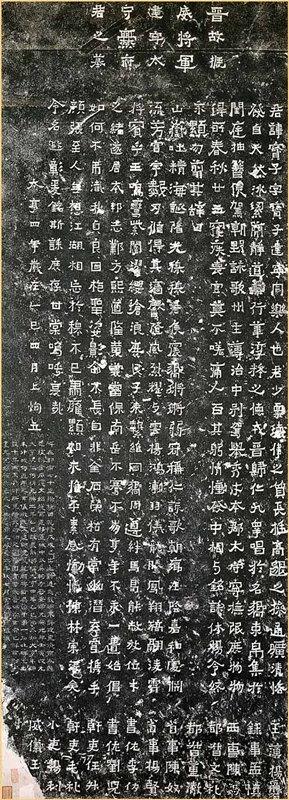 晉故振
威將軍
建寧太
守爨府
君之墓
君諱寶子字寶子建寧同樂人也君少稟瓌偉之質長挺高邈之操通曠清恪
發自天然冰絜簡靜道兼行葦淳粹之德戎晉歸仁九皋唱於名嚮束帛集於
閨庭抽簪俟駕朝野詠歌州主簿治中別駕舉秀才本郡太守寧撫氓庶物物
得所春秋廿五寢疾喪官莫不嗟痛人百其躬情慟發中相與銘誄休揚令終
永顯勿翦其辭曰
山嶽吐精海誕陽光穆穆君侯震響鏘鏘弱冠稱仁詠歌朝鄉在陰嘉和處淵
流芳宮宇數仞循得其牆馨隨風烈耀與雲揚鴻漸羽儀龍騰鳳翔矯翮凌霄
將賓乎王鳴鸞紫闥濯纓滄浪庶民子來縶維同嚮周遵絆馬曷能赦放位才
之緒遂居本邦志鄴方熙道隆黃裳當保南岳不騫不崩享年不永一匱始倡
如何不弔殲我貞良回抱聖姿影命不長自非金石榮枯有常幽潛玄穹攜手
顏張至人無想江湖相忘於穆不已肅雍顯相永惟平素感慟忾慷林宗沒矣
令名遐彰爰銘斯誄庶存甘棠嗚呼哀哉
大亨四年歲在乙巳四月上恂立
主簿楊磐
錄事孟慎
西曹陳勃
都督文禮
都督董徹
省事陳奴
省事楊賢
書佐李仂
書佐劉兒
幹吏任升
幹吏毛禮
小吏楊利
威儀王